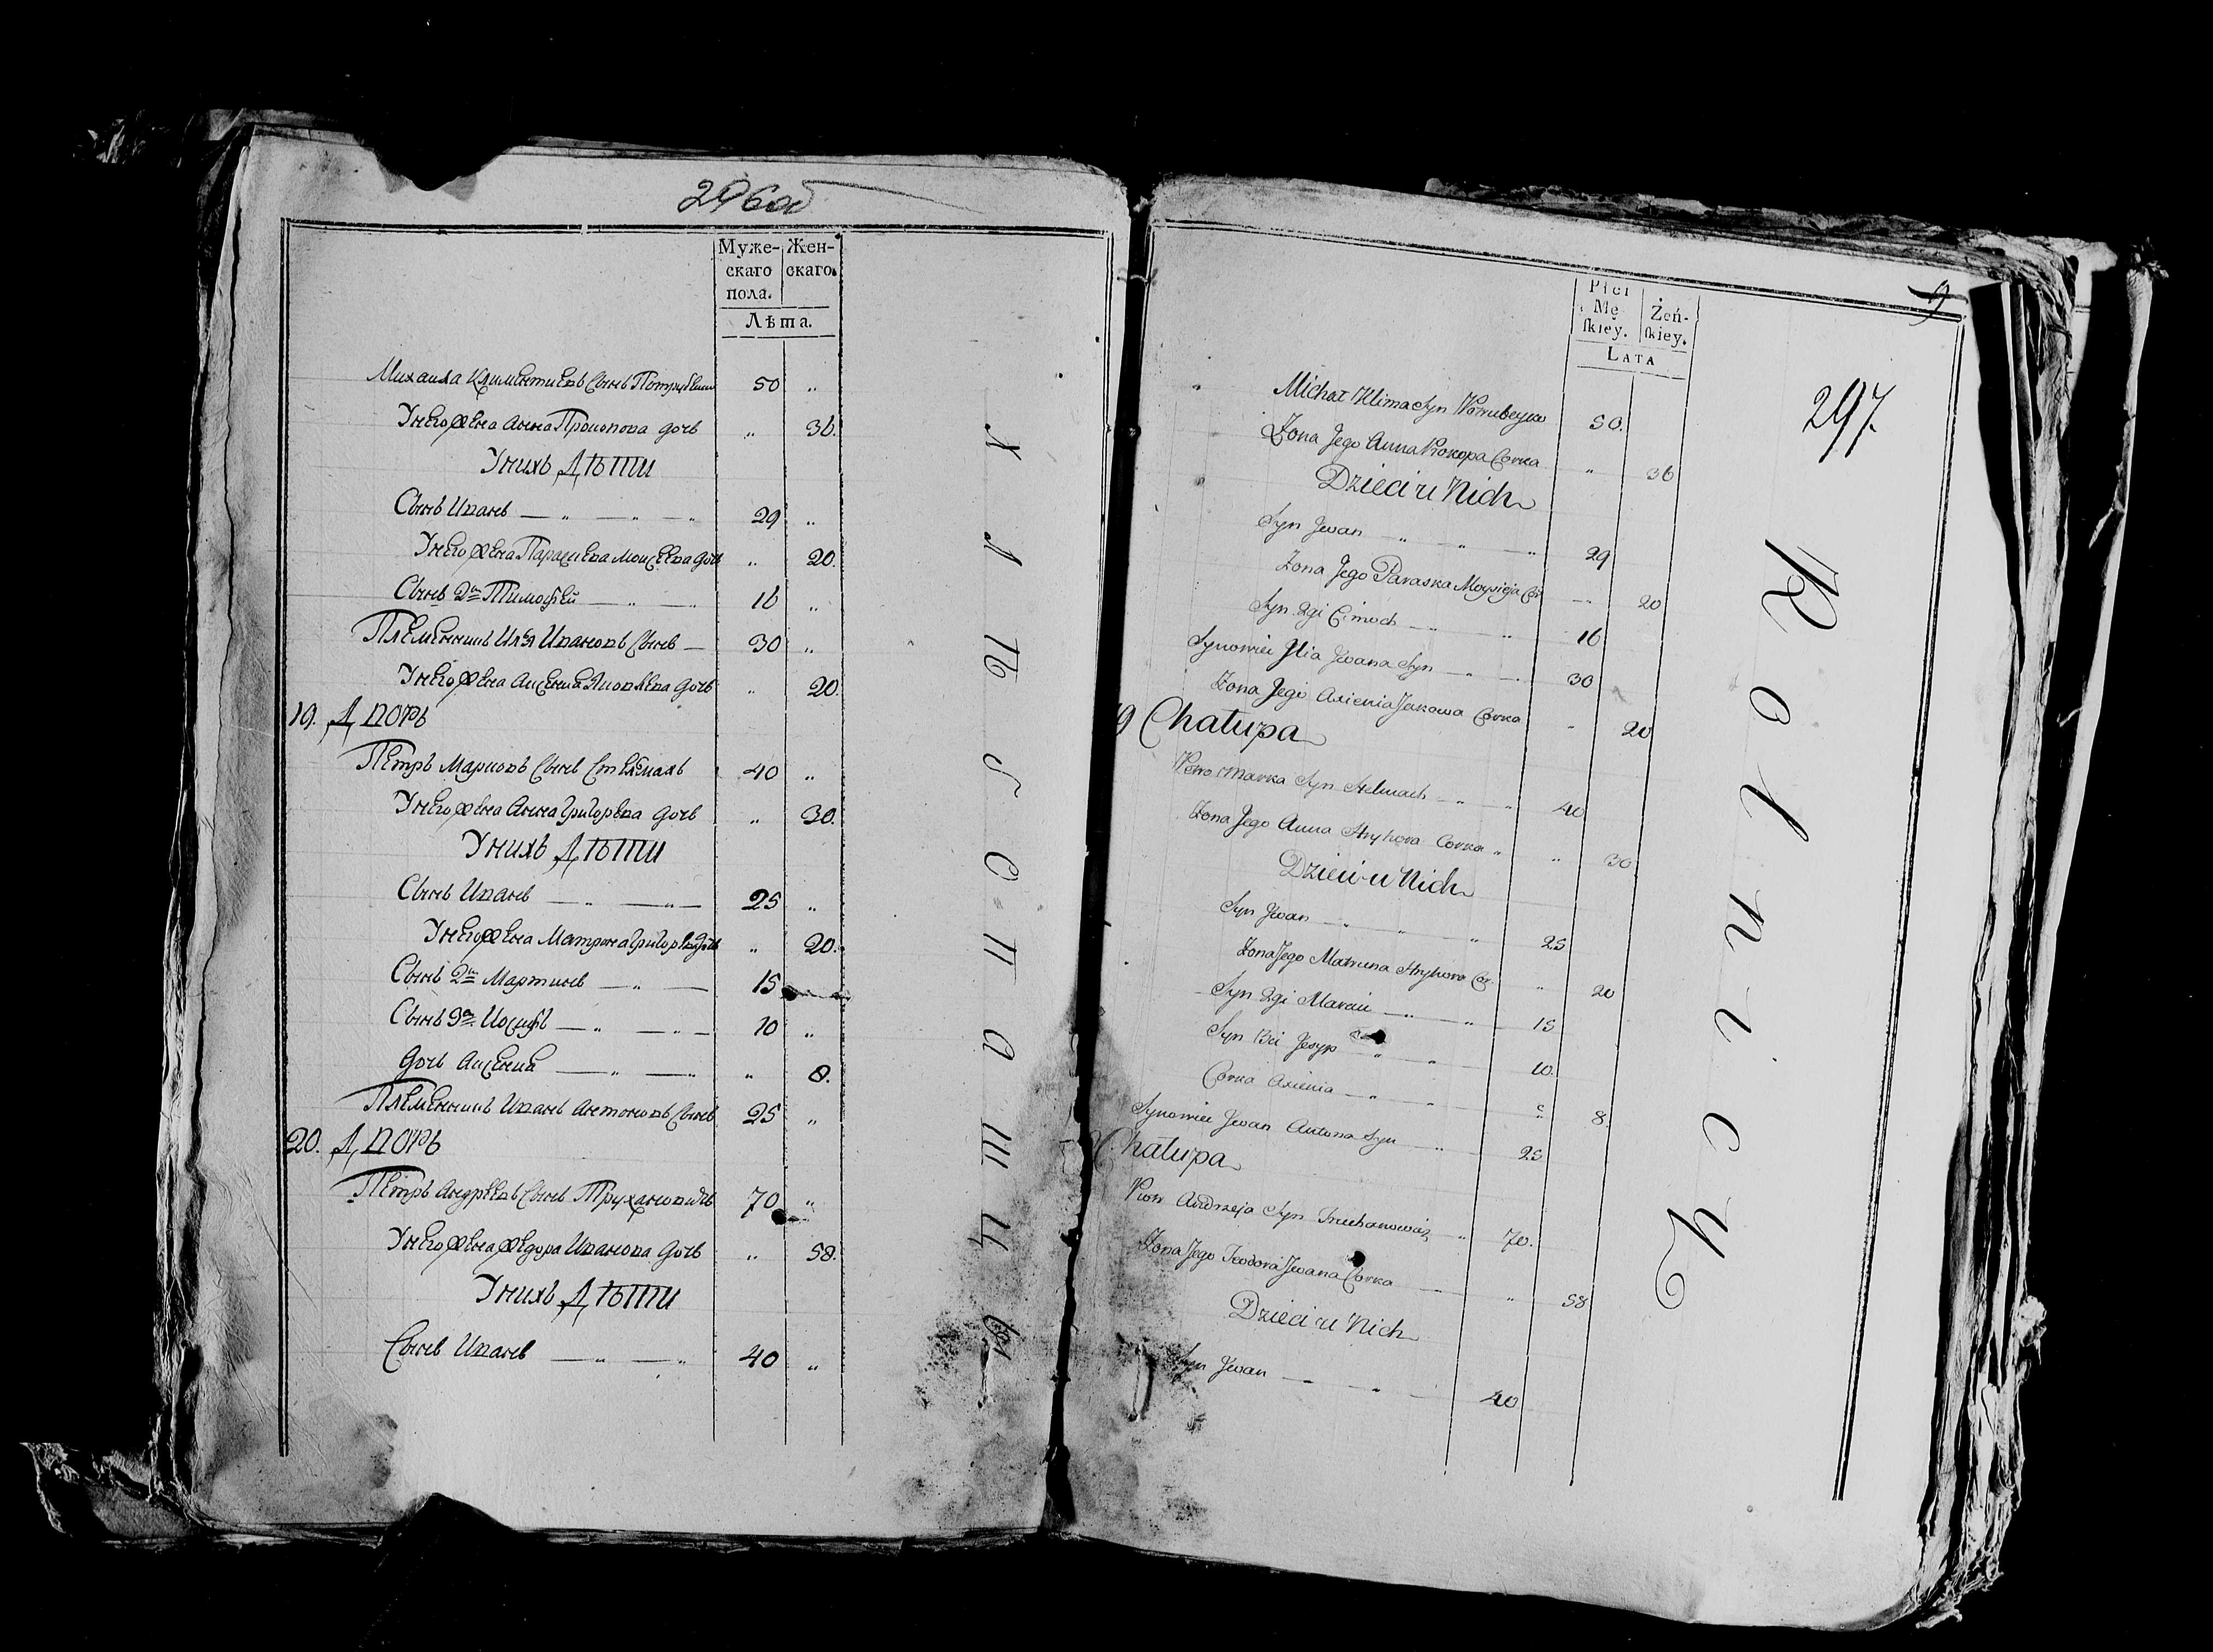 296об
Муже-
скаго
пола.
Жен-
скаго.
Лѣта.
Михаила Климентиевъ Сынъ 50 „
Унего жена Анна Прокопова дочь „ 36.
Унихъ Дѣти
Сынъ Иванъ — „ — „ 29 „
Унего жена Параскева Моисеева дочь „ 20.
Сынъ 2й Тимофей — „ — 16 „
Племянникъ Илья Ивановъ Сынъ — 30 „
Унего жена Аксенiя Яковлева дочь „ 20.
19. Дворъ
Петръ Марковъ Сынъ Стельмахъ 40 „
Унего жена Анна Григорьева дочь „ 30.
Унихъ Дѣти
Сынъ Иванъ — „ — „ — 25 „
Унего жена Матрона Григорьева дочь „ 20.
Сынъ 2й Мартинъ — „ — 15
Сынъ 3й Иосифъ — „ — „ 10 „
Дочь Аксения — „ — „ „ 8.
Племянникъ Иванъ Антоновъ Сынъ 25 „
20. Дворъ
Петръ Андрѣевъ Сынъ Трухановичь 70 „
Унего жена Федора Иванова Дочь „ 58.
Унихъ Дѣти
Сынъ Иванъ — „ — „ 40 „
Хлѣбопашцы
9
297.
Płci
Mę
ſkiey.
Żeń-
ſkiey.
Lata
Michał Klima Syn 50.
Żona Jego Anna Prokopa Corka „ 36
Dzieci u Nich
Syn Jwan — „ „ „ 29
Żona Jego Paraska Moysieja Cor. — „ 20
Syn 2gi Cimoch — „ „ 16
Synowiec Jlia Jwana Syn — „ — 30
Żona Jego Axienia Jakowa Corka „ 20
19 Chałupa
Petro Marka Syn Stelmach — „ „ 40
Żona Jego Anna Hryhora Corka „ „ 30
Dzieci u Nich
Syn Jwan — „ „ „ 25
Żona Jego Matruna Hryhora Cor. „ 20
Syn 2gi Marcin — „ „ — 15
Syn 3ci Josyp „ „ 10.
Corka Axienia — „ „ „ 8.
Synowiec Jwan Antona Syn — „ 25
Chałupa
Piotr Andrzeja Syn Truchanowicz — „ 70.
Żona Jego Teodora Jwana Corka — „ 58
Dzieci u Nich
Syn Jwan — „ — „ — 40
Rolnicy